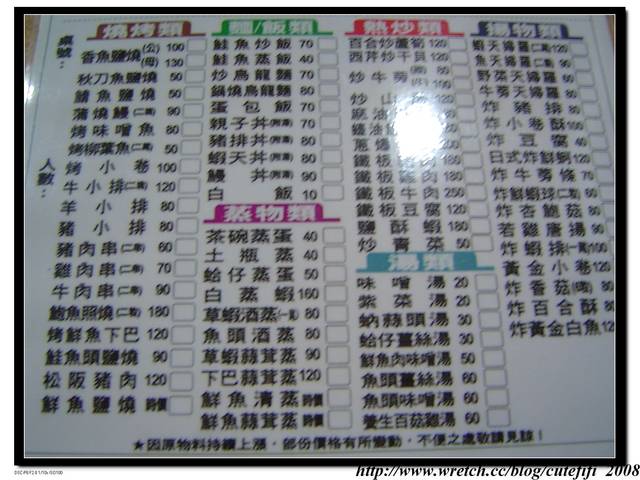 燒烤類
桌號：
人數：
香魚鹽燒(公) 100
(母) 130
秋刀魚鹽燒 50
鯖魚鹽燒 50
蒲燒鰻(二串) 90
烤味噌魚 80
烤柳葉魚(二串) 50
烤小卷 100
牛小排(二串) 120
羊小排 80
豬小排 80
豬肉串(二串) 60
雞肉串(二串) 70
牛肉串(二串) 90
鮑魚照燒(二串) 180
烤鮮魚下巴 120
鮭魚頭鹽燒 90
松阪豬肉 120
鮮魚鹽燒 時價
麵/飯類
鮭魚炒飯 70
鮭魚蒸飯 40
炒烏龍麵 70
鍋燒烏龍麵 80
蛋包飯 70
親子丼(附湯) 70
豬排丼(附湯) 80
蝦天丼(附湯) 80
鰻丼(附湯) 90
白飯 10
蒸物類
茶碗蒸蛋 40
土瓶蒸 40
蛤仔蒸蛋 50
白蒸蝦 160
草蝦酒蒸 80
魚頭酒蒸 80
草蝦蒜茸蒸 90
下巴蒜茸蒸 120
鮮魚清蒸 時價
鮮魚蒜茸蒸 時價
熱炒類
百合炒蘆筍 120
西芹炒干貝 120
炒牛蒡 80
炒山 120
鐵板 180
鐵板 肉 180
鐵板牛肉 250
鐵板豆腐 120
鹽酥蝦 180
炒青菜 50
湯類
味噌湯 20
紫菜湯 20
蚋蒜頭湯 30
蛤仔薑絲湯 30
鮮魚肉味噌湯 50
魚頭薑絲湯 60
魚頭味噌湯 60
養生百菇雞湯 60
揚物類
蝦天婦羅(二串) 120
魚天婦羅(二串) 90
野菜天婦羅 60
牛蒡天婦羅 60
炸豬排 80
炸小卷酥 100
炸豆腐 40
日式炸鮮蚵 120
炸牛蒡條 70
炸鮮蝦球(二串) 60
炸杏鮑菇 80
若雞唐揚 90
炸蝦排(一片) 100
黃金小卷 120
炸香菇 80
炸百合酥 80
炸黃金白魚 120
★因原物料持續上漲，部份價格有所變動，不便之處敬請見諒！
http://www.wretch.cc/blog/cutefifi 2008